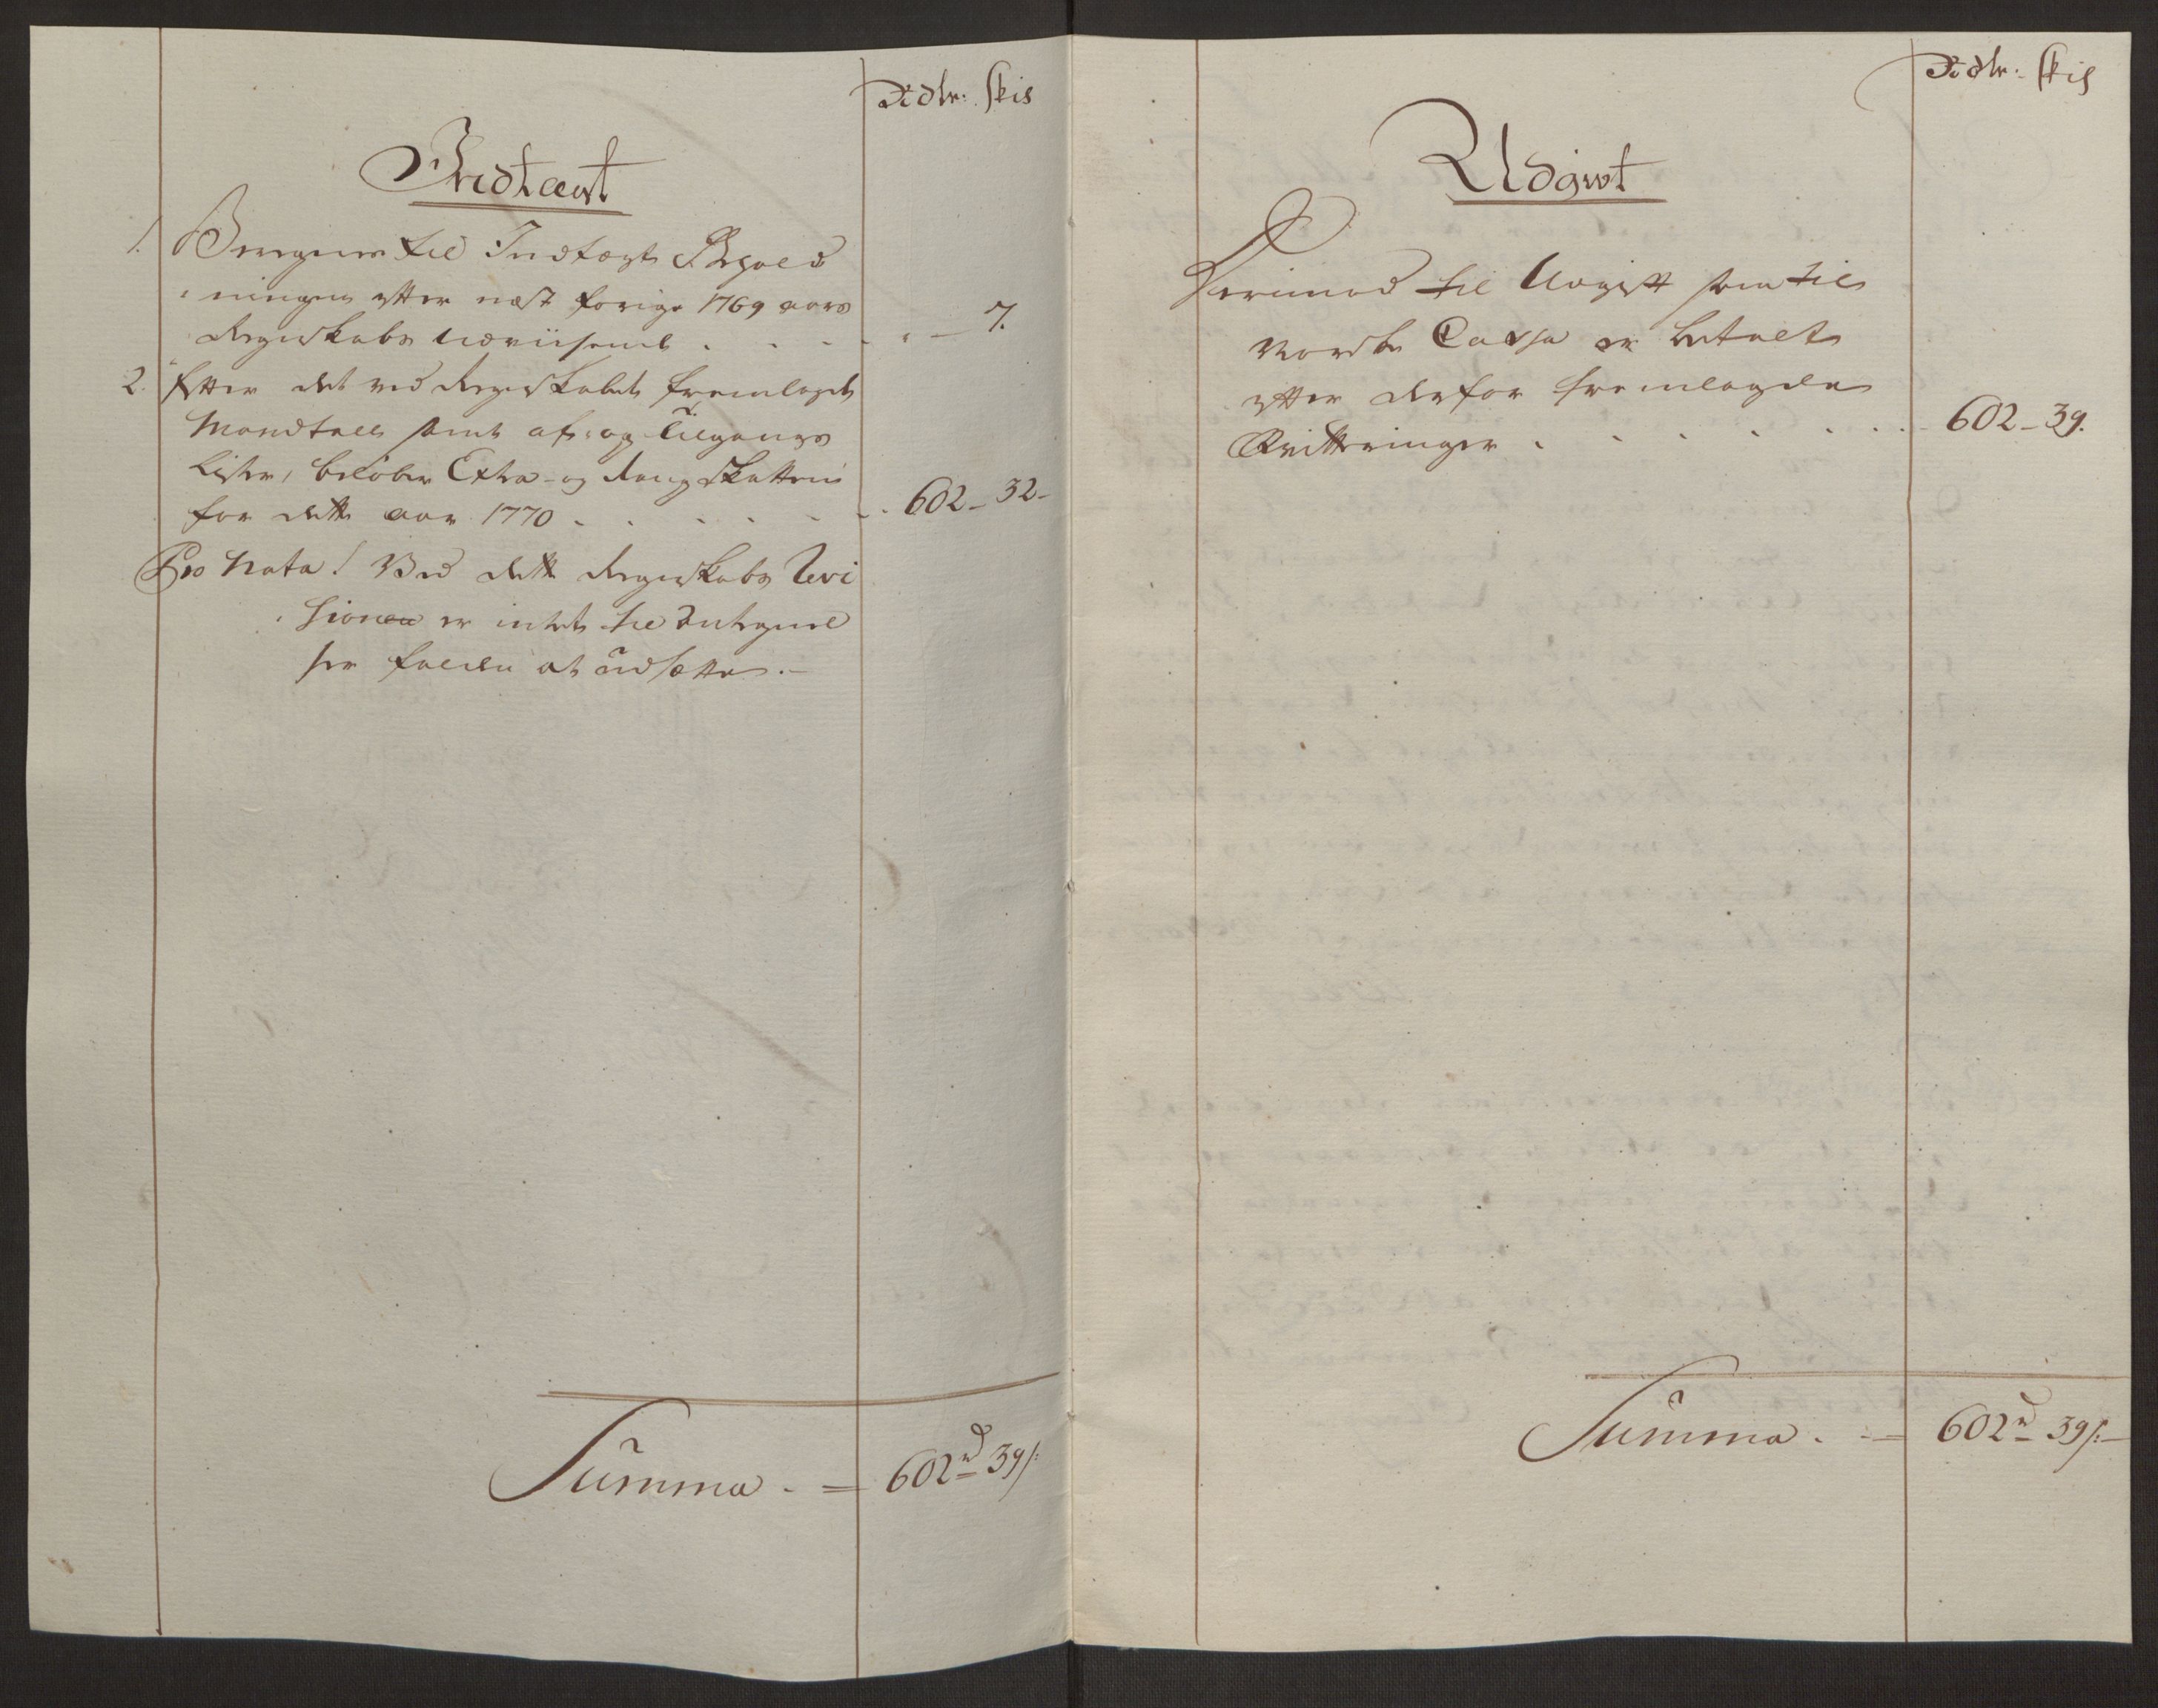 Rdlr. skis
Indtægt
1. Beregnes til Indtægt Behold
ningen efter næst forige 1769 aars
Regnskabs udviisende . . . . " — 7.
2. Efter det ved Regnskabet fremlagde
Mandtall samt af- og Tilgangs
Lister, beløber Extra- og Rangskatten
for dette aar 1770 . . . . . . 602 - 32 -
Pro Nota! Ved dette Regnskabs Revi
sionen er intet til Antegnel
ser falden at udsætte. -
Summa . = 602rd 39s:
Rdlr. skis
Udgivt
Herimod til Udgift som til
Norske Cassa er betalt
efter derfor fremlagde
Qvitteringer . . . . . . 602 - 39.
Summa . - = 602rd 39s: -